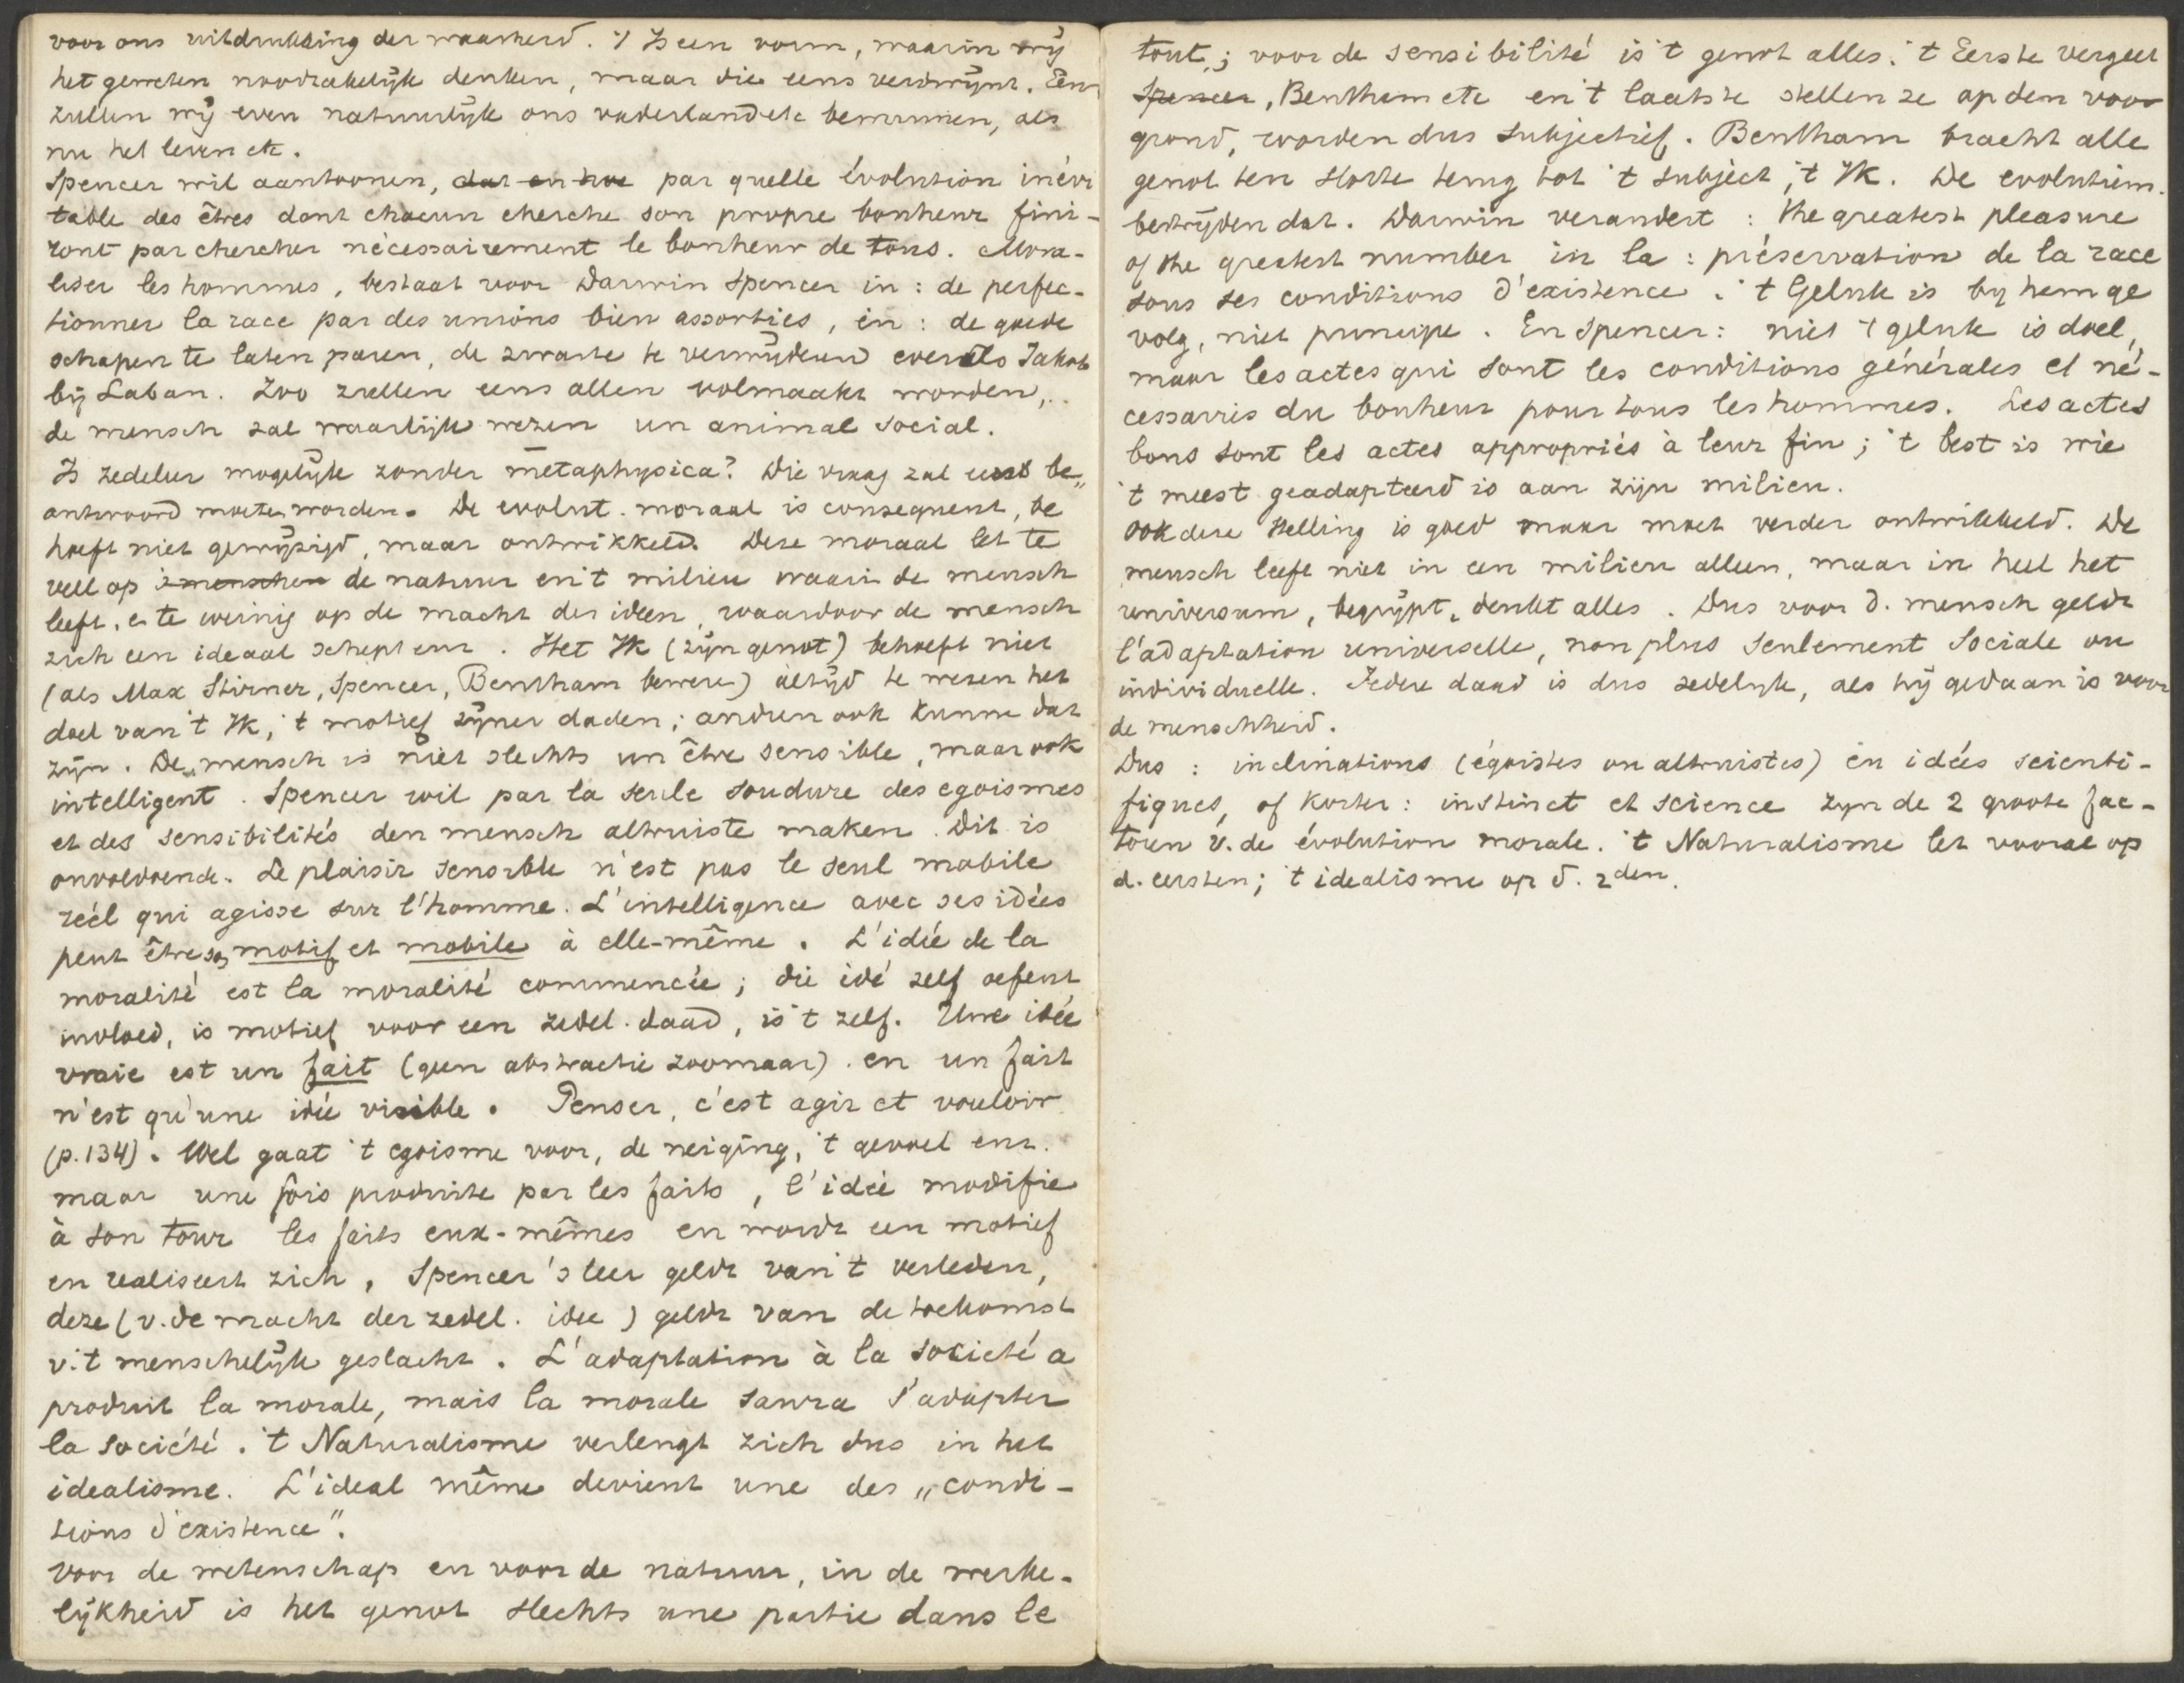 voor ons uitdrukking der waarheid. 't Is een vorm, waarin wij
het geweten noodzakelijk denken, maar die eens verdwijnt. Eens
zullen wij even natuurlijk ons vaderland etc beminnen, als
nu het leven etc.
Spencer wil aantoonen, dat en hoe par quelle évolution inévi
table des êtres dont chacun cherche son propre bonheur fini-
ront par chercher nécessairement le bonheur de tous. Mora-
liser les hommes, bestaat voor Darwin Spencer in: de perfec-
tionner la race par des unions bien assorties, in: de goede
schapen te laten paren, de zwarte te verwijderen evenals Jakob
bij Laban. Zoo zullen eens allen volmaakt worden,
de mensch zal waarlijk wezen un animal social.
Is zedeleer mogelijk zonder metaphysica? Die vraag zal eerst be„
antwoord moeten worden. De evolut. moraal is consequent, be
hoeft niet gewijzigd, maar ontwikkeld. Deze moraal let te
veel op 's menschen de natuur en 't milieu waarin de mensch
leeft, en te weinig op de macht der ideen, waardoor de mensch
zich een ideaal schept enz. Het Ik (zijn genot) behoeft niet
(als Max Stirner, Spencer, Bentham beweren) altijd te wezen het
doel van 't Ik, 't motief zijner daden; andren ook kunnen dat
zijn. De mensch is niet slechts un être sensible, maar ook
intelligent. Spencer wil par la seule soudure des egoismes
et des sensibilités den mensch altruiste maken. Dit is
onvoldoende. Le plaisir sensible n'est pas le seul mobile
réél qui agisse sur l'homme. L'intelligence avec ses idées
peut être son motif et mobile à elle-même. L'idée de la
moralité est la moralité commencée; die idé zelf oefent
invloed, is motief voor een zedel. daad, is 't zelf. Une idée
vraie est un fait (geen abstractie zoomaar). en un fait
n'est qu'une idée visible. Penser, c'est agir et vouloir
(p.134). Wel gaat 't egoisme voor, de neiging, 't gevoel enz.
maar une fois produite par les faits, l'idée modifie
à son tour les faits eux-mêmes en wordt een motief
en realiseert zich. Spencer's leer geldt van 't verleden,
deze (v. de macht der zedel. idee) geldt van de toekomst
v. 't menschelijk geslacht. L'adaptation à la société a
produit la morale, mais la morale saura s'adapter
la société. 't Naturalisme verlengt zich dus in het
idealisme. L'ideal même devient une des „condi-
tions d'existence".
Voor de wetenschap en voor de natuur, in de werke-
lijkheid is het genot slechts une partie dans le
tout; voor de sensibilité is 't genot alles. 't Eerste vergeet
Spencer, Bentham etc en 't laatste stellen ze op den voor
grond, worden dus subjectief. Bentham bracht alle
genot ten slotte terug tot 't subject, 't Ik. De evolution.
bestrijden dat. Darwin verandert: the greatest pleasure
of the greatest number in la: préservation de la race
sous ses conditions d'existence. 't Geluk is bij hem ge
volg, niet principe. En Spencer: niet 't geluk is doel,
maar les actes qui sont les conditions générales et né-
cessairis du bonheur pour tous les hommes. Les actes
bons sont les actes appropriés à leur fin; 't best is wie
't meest geadapteerd is aan zijn milieu.
Ook deze stelling is goed maar moet verder ontwikkeld. De
mensch leeft niet in een milieu alleen, maar in heel het
universum, begrijpt, denkt alles. Dus voor d. mensch geldt
l'adaptation universelle, non plus seulement sociale ou
individuelle. Iedere daad is dus zedelijk, als hij gedaan is voor
de menschheid.
Dus: inclinations (égoistes ou altruistes) en idées scienti-
fiques, of korter: instinct et science zijn de 2 groote fac-
toren v. de évolution morale. 't Naturalisme let vooral op
d. eersten; 't idealisme op d. 2den.